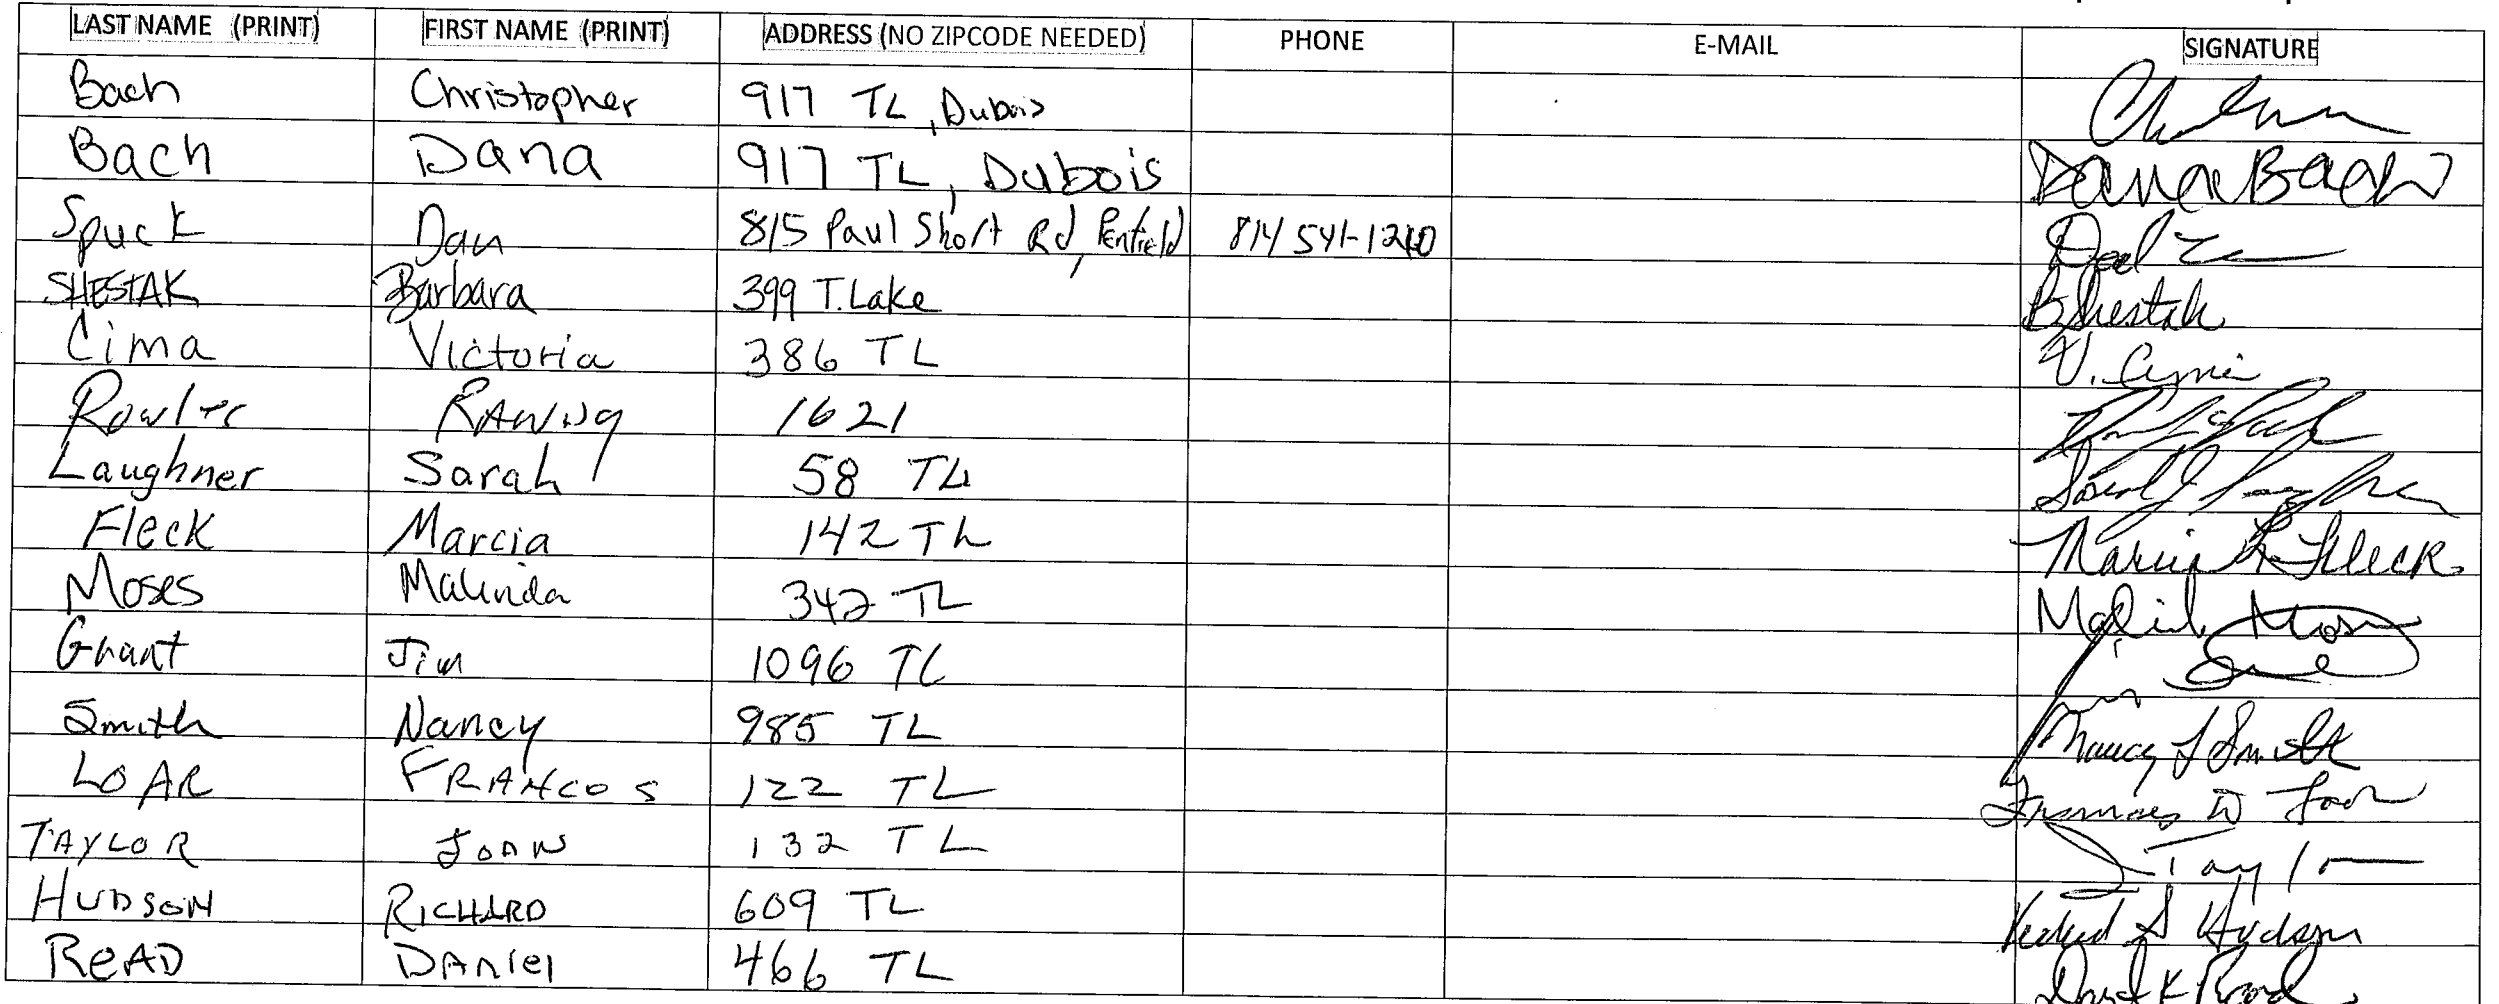 LAST NAME (PRINT) FIRST NAME (PRINT) ADDRESS (NO ZIPCODE NEEDED) PHONE E-MAIL SIGNATURE
Bach Christopher 917 TL, Dubois
Bach Dana 917 TL, Dubois Dana Bach
Spuck Dan 815 Paul Short Rd, Penfield 814 541-1210
SHESTAK Barbara 399 T.Lake B Shestak
Cima Victoria 386 TL V. Cima
Rowles RANDY 1621
Laughner Sarah 58 TL Sarah J Laughner
Fleck Marcia 142 TL Marcia L Fleck
Moses Malinda 342 TL Malinda Moses
Grant Jim 1096 TL
Smith Nancy 985 TL Nancy J Smith
LOAR FRANCES 122 TL Frances W Loar
TAYLOR JOAN 132 TL J Taylor
HUDSON RICHARD 609 TL Richard S Hudson
READ DANIEl 466 TL